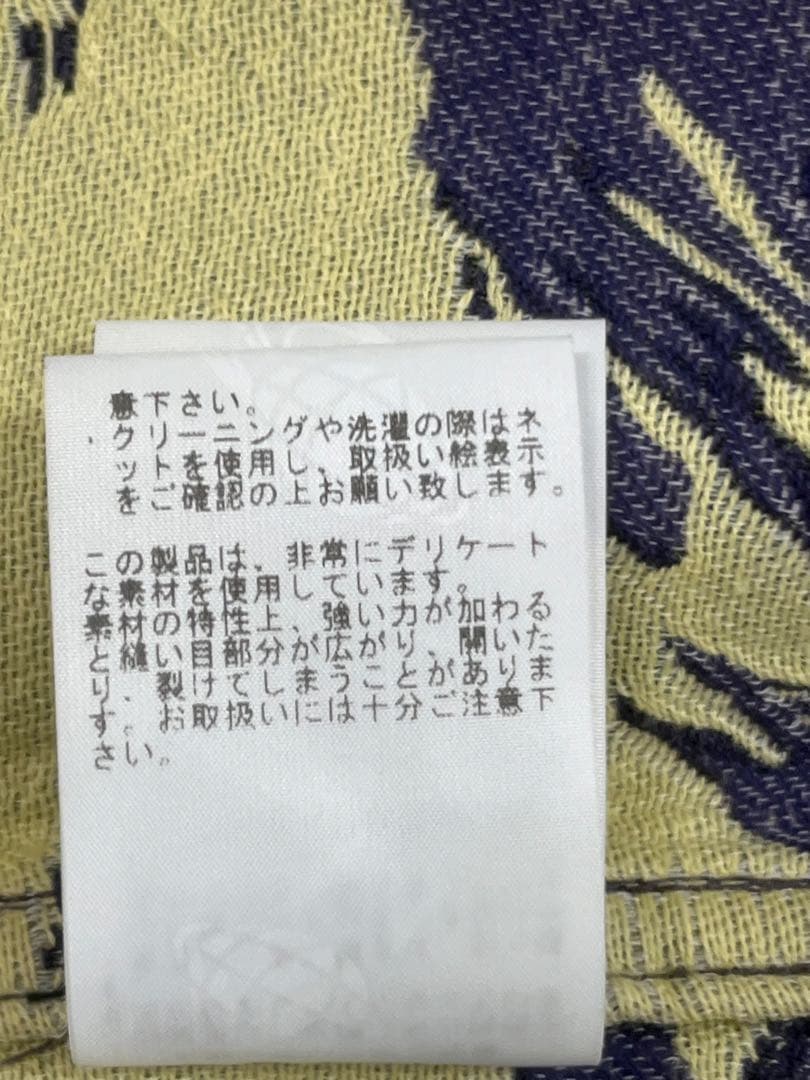 意下さい。
・クリーニングや洗濯の際はネ
ットを使用し、取扱い絵表示
をご確認の上お願い致します。
この製品は、非常にデリケート
な素材を使用しています。
素材の特性上、強い力が加わる
と縫い目部分が広がり、開いた
り、裂けてしまうことがありま
す。お取扱いには十分ご注意下
さい。